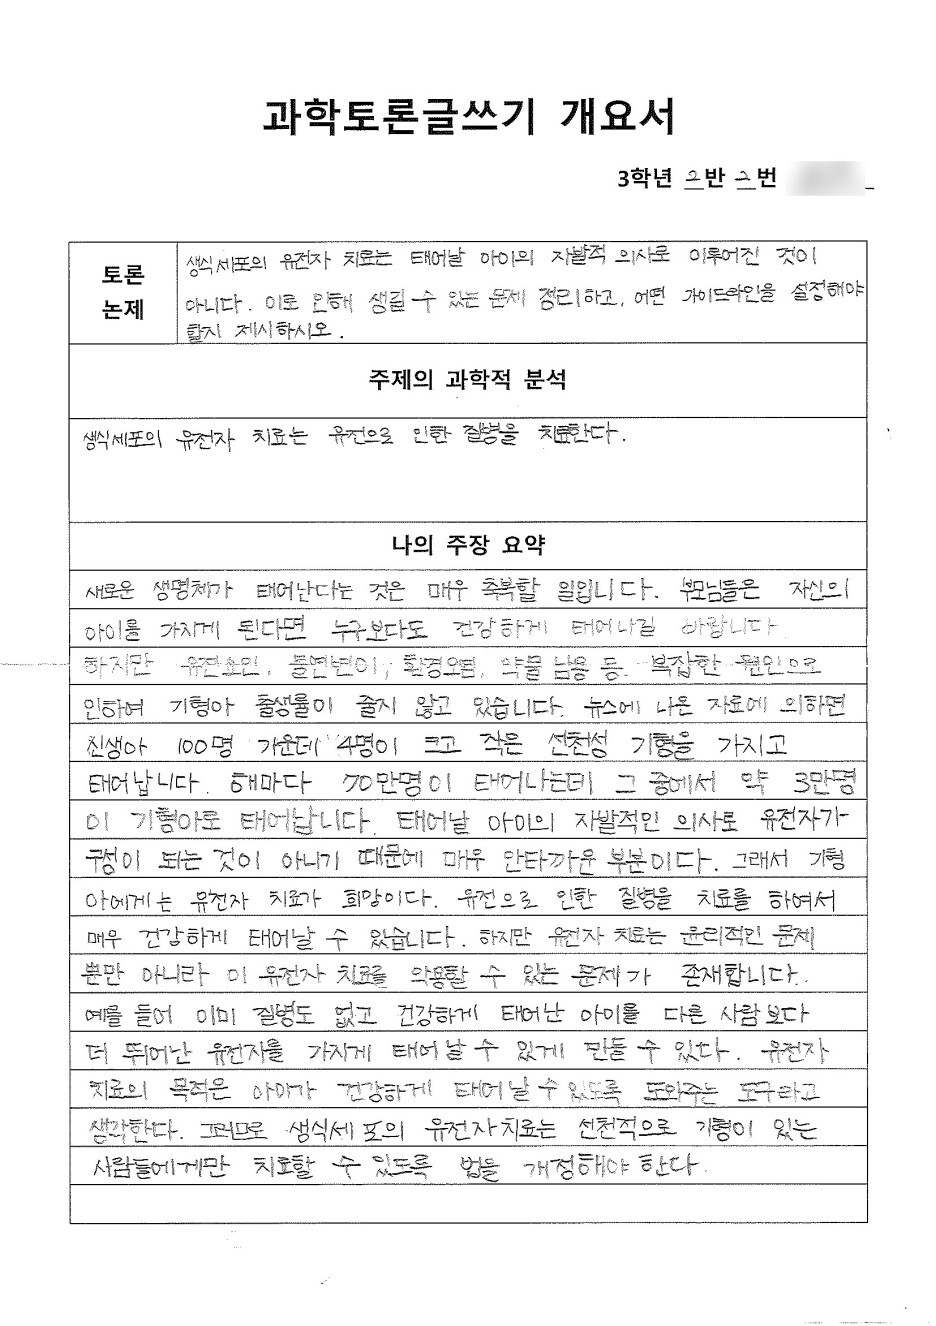 과학토론글쓰기 개요서
3학년 2반 2번
토론 논제
생식세포의 유전자 치료는 태어날 아이의 자발적 의사로 이루어진 것이
아니다. 이로 인해 생길 수 있는 문제 정리하고, 어떤 가이드라인을 설정해야
할지 제시하시오.
주제의 과학적 분석
생식세포의 유전자 치료는 유전으로 인한 질병을 치료한다.
나의 주장 요약
새로운 생명체가 태어난다는 것은 매우 축복할 일입니다. 부모님들은 자신의
아이를 가지게 된다면 누구보다도 건강하게 태어나길 바랍니다
하지만 유전요인, 돌연변이, 환경오염, 약물 남용 등 복잡한 원인으로
인하여 기형아 출생률이 줄지 않고 있습니다. 뉴스에 나온 자료에 의하면
신생아 100명 가운데 4명이 크고 작은 선천성 기형을 가지고
태어납니다. 해마다 70만명이 태어나는데 그 중에서 약 3만명
이 기형아로 태어납니다. 태어날 아이의 자발적인 의사로 유전자가
구성이 되는 것이 아니기 때문에 매우 안타까운 부분이다. 그래서 기형
아에게는 유전자 치료가 희망이다. 유전으로 인한 질병을 치료를 하여서
매우 건강하게 태어날 수 있습니다. 하지만 유전자 치료는 윤리적인 문제
뿐만 아니라 이 유전자 치료를 악용할 수 있는 문제가 존재합니다.
예를 들어 이미 질병도 없고 건강하게 태어난 아이를 다른 사람보다
더 뛰어난 유전자를 가지게 태어날 수 있게 만들 수 있다. 유전자
치료의 목적은 아이가 건강하게 태어날 수 있도록 도와주는 도구라고
생각한다. 그러므로 생식세포의 유전자치료는 선천적으로 기형이 있는
사람들에게만 치료할 수 있도록 법을 개정해야 한다.